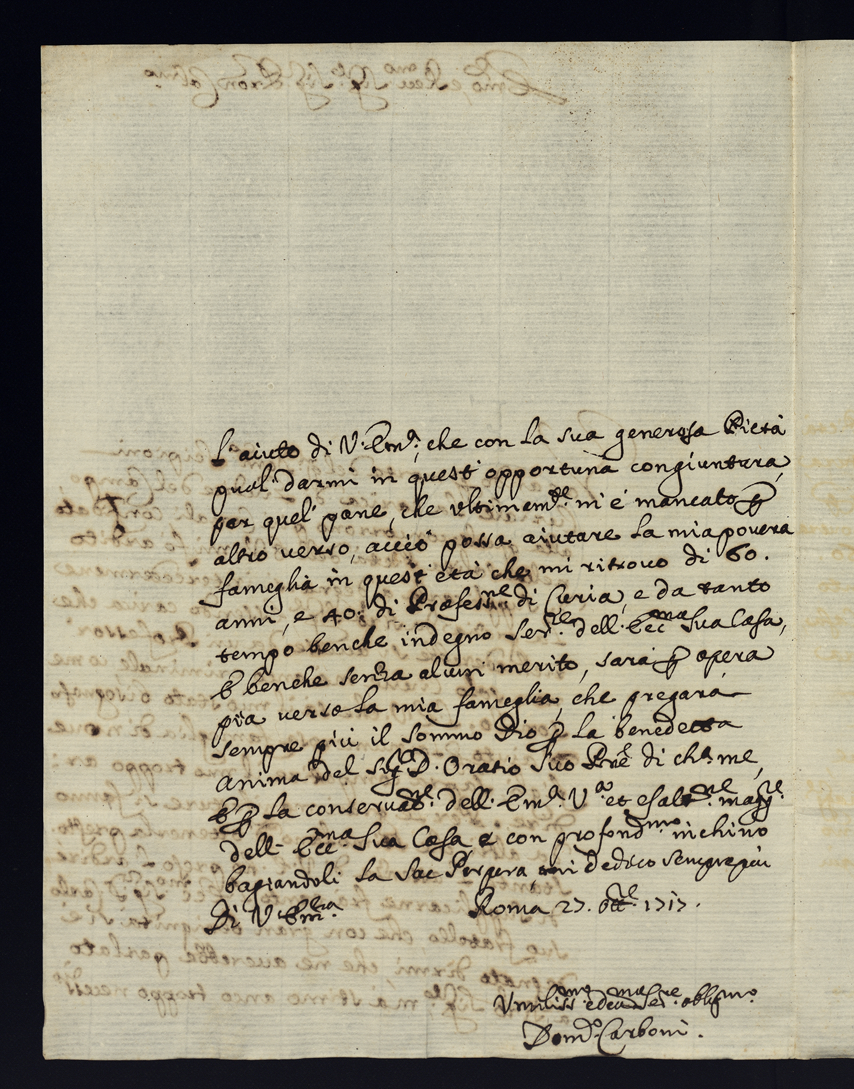 l'aiuto di V. Em.ª, che con la sua generosa Pietà
qual' darmi in quest' opportuna congiuntura,
par quel' pane, che ultimam.te m' é mancato p
altro verso, acciò possa aiutare la mia povera
famegliá in quest' età che mi ritrovo di 60.
anni, e 40. di Profess.ne di Curia, e da tanto
tempo benche indegno Ser.re dell' Ecc.ma Sua Casa,
E benche senza alcun merito, sarà p opera
pia verso la mia famegliá, che pregarà
sempre più il sommo Dio p la benedetta
anima del Sig.r D. Oratio suo Pre di ch. me,
E p la conservat.ne dell' Em.ª V.ª et esalt.ne magg.re
dell' Ecc.ma Sua Casa e con profond.mo inchino
bagiandoli la Sac. Porpora mi dedico sempre più
Di V. Em.za Roma 27. Ott.re 1717.
Umiliss.mo ed Ser.re oblig.mo
Dom.co Carboni.